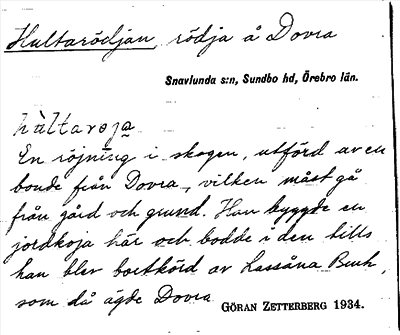 Hultarödjan, rödja å Dovra
Snavlunda s:n, Sundbo hd, Örebro län.
hàltaroja
En röjning i skogen, utförd av en
bonde från Dovra, vilken måst gå
från gård och grund. Han byggde en
jordkoja här och bodde i den tills
han blev bortkörd av Lassåna Bruk,
som då ägde Dovra
GÖRAN ZETTERBERG 1934.